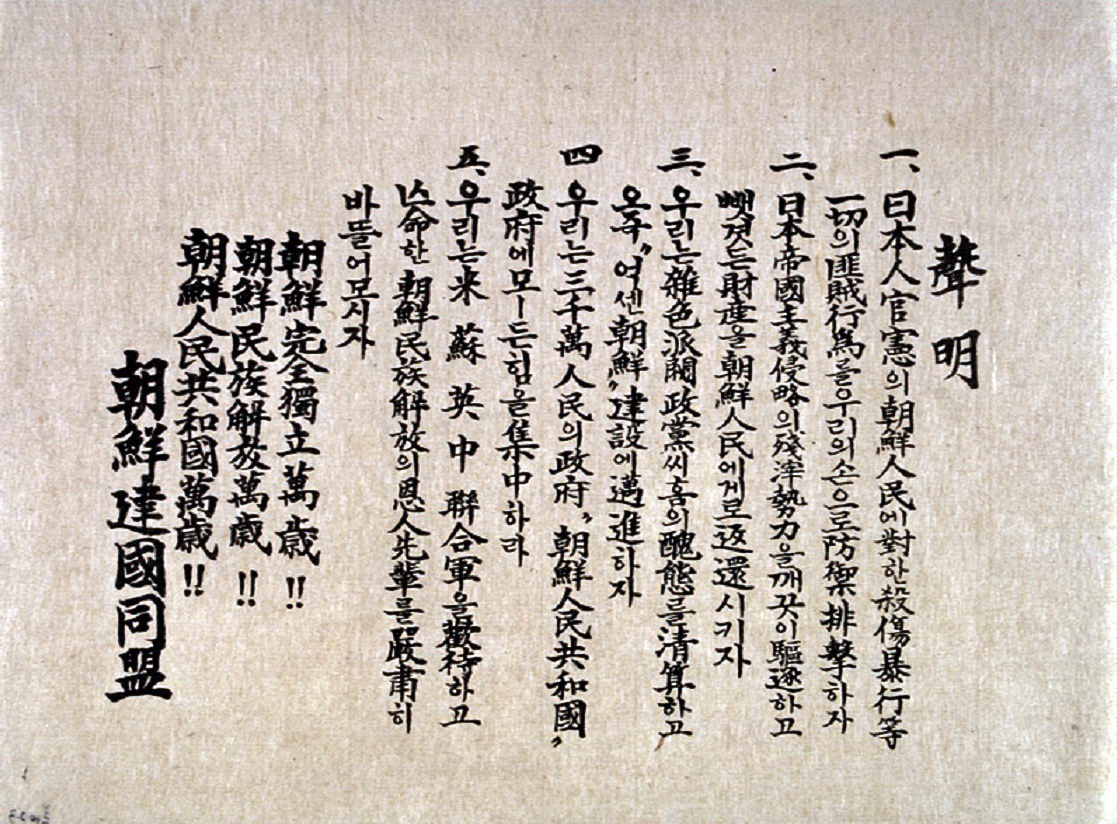 聲明
一、日本人官憲의朝鮮人民에對한殺傷暴行等
一切의匪賊行爲를우리의손으로防禦排擊하자
二、日本帝國主義侵略의殘滓勢力을깨끗이驅逐하고
뺏겻든財産을朝鮮人民에게로返還시키자
三、우리는雜色派閥政黨씨홈의醜態를淸算하고
오즉〃억센朝鮮〃建設에邁進하자
四 우리는三千萬人民의政府〃朝鮮人民共和國〃
政府에모ー든힘을集中하라
五、우리는米 蘇 英 中 聯合軍을歡待하고
亡命한朝鮮民族解放의恩人先輩를嚴肅히
바뜰어모시자
朝鮮完全獨立萬歲!!
朝鮮民族解放萬歲!!
朝鮮人民共和國萬歲!!
朝鮮建國同盟